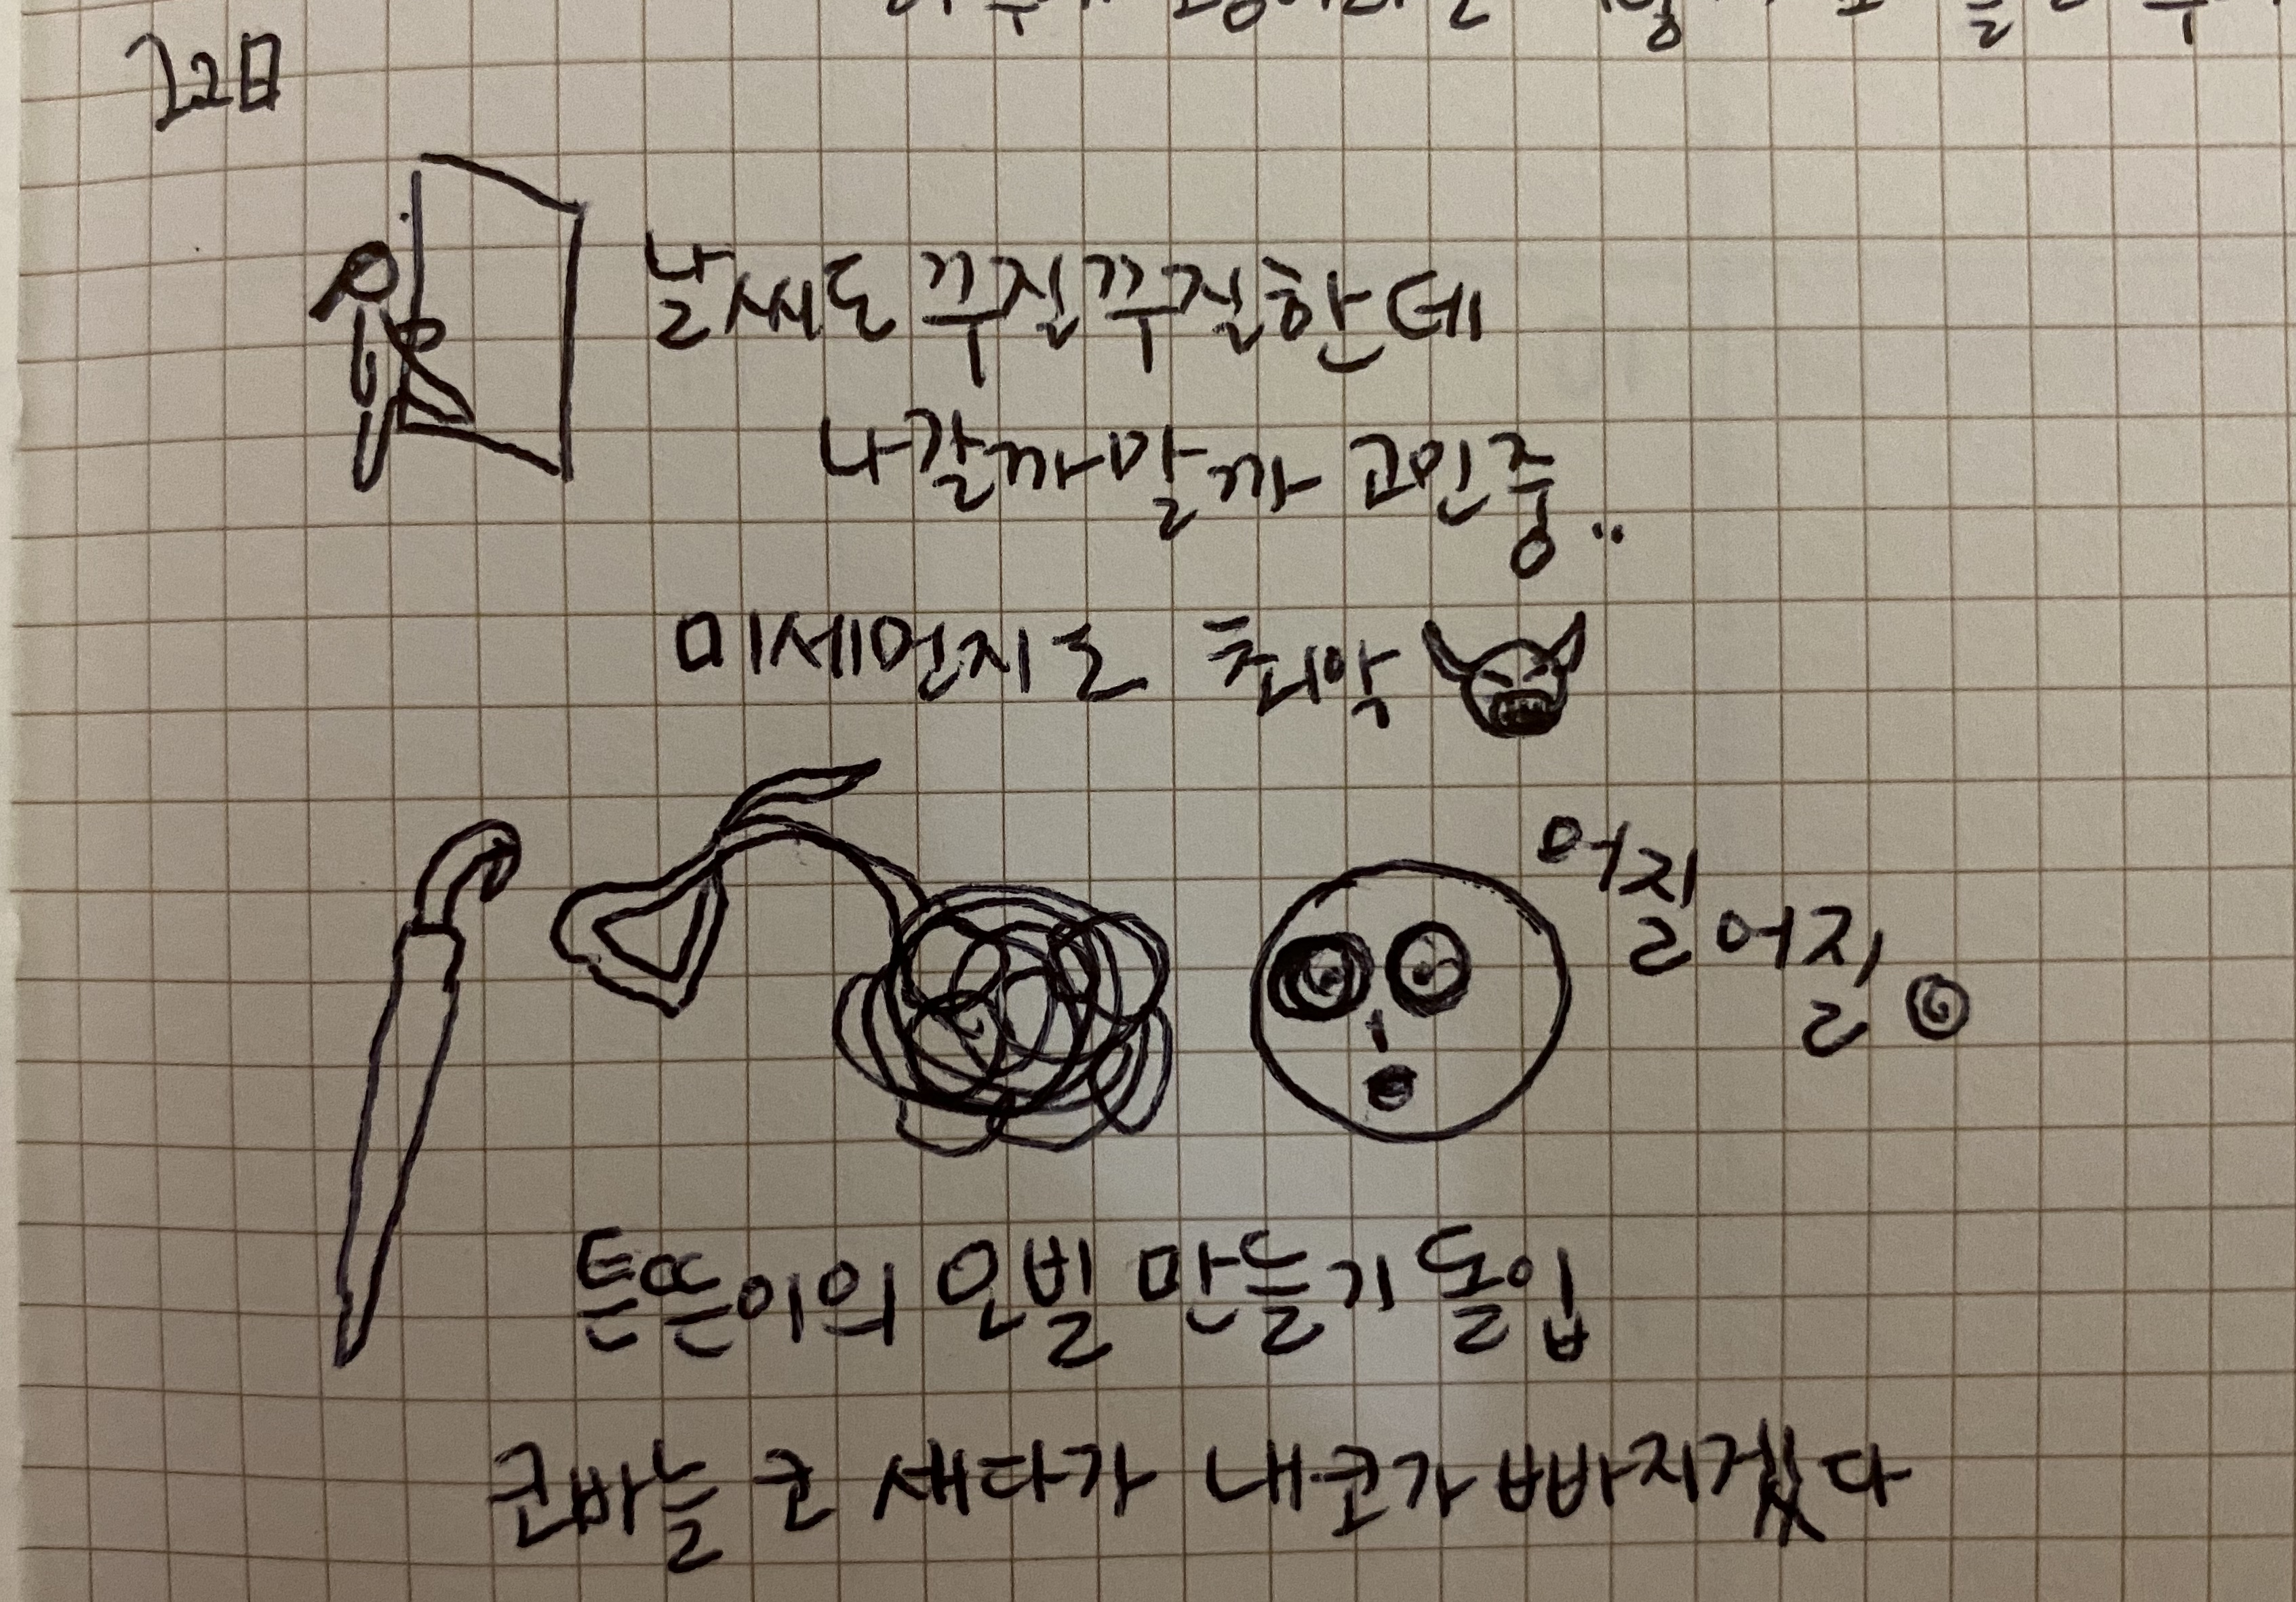 22日
날씨도 꾸질꾸질한데
나갈까말까 고민중..
미세먼지도 최악
어질어질
튼뜬이의 모빌 만들기 돌입
코바늘 코 새다가 내코가 빠지겠다